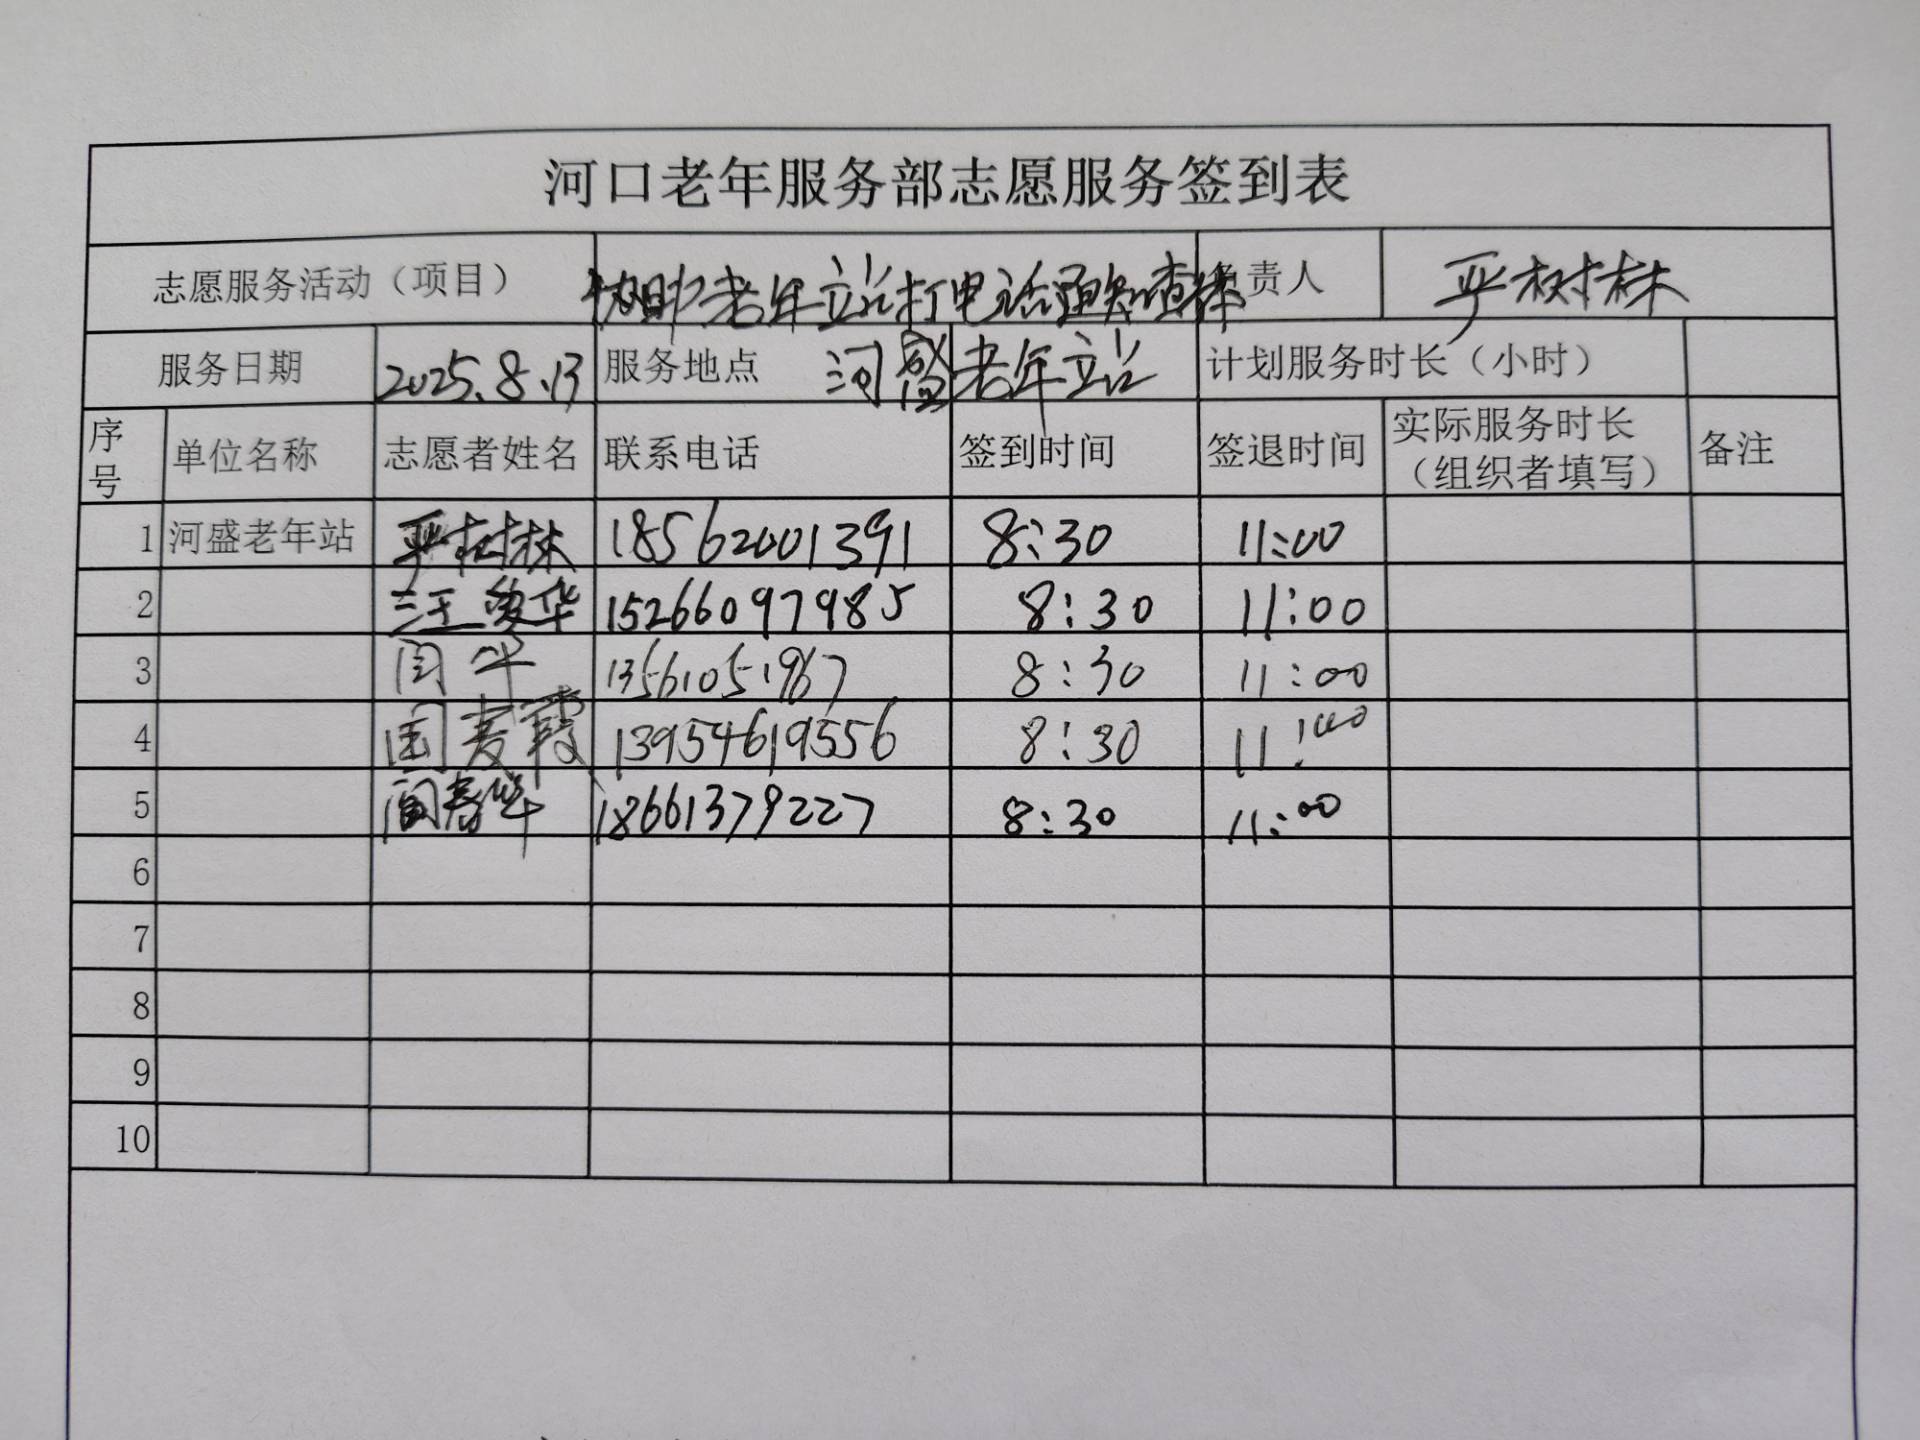 河口老年服务部志愿服务签到表
志愿服务活动（项目） 协助老年站打电话通知查体 负责人 严树林
服务日期 2025.8.13 服务地点 河盛老年站 计划服务时长（小时）
序号 单位名称 志愿者姓名 联系电话 签到时间 签退时间 实际服务时长（组织者填写） 备注
1 河盛老年站 严树林 18562001391 8:30 11:00
2 15266097985 8:30 11:00
3 13561051967 8:30 11:00
4 13954619556 8:30 11:00
5 阎春华 18661379227 8:30 11:00
6
7
8
9
10